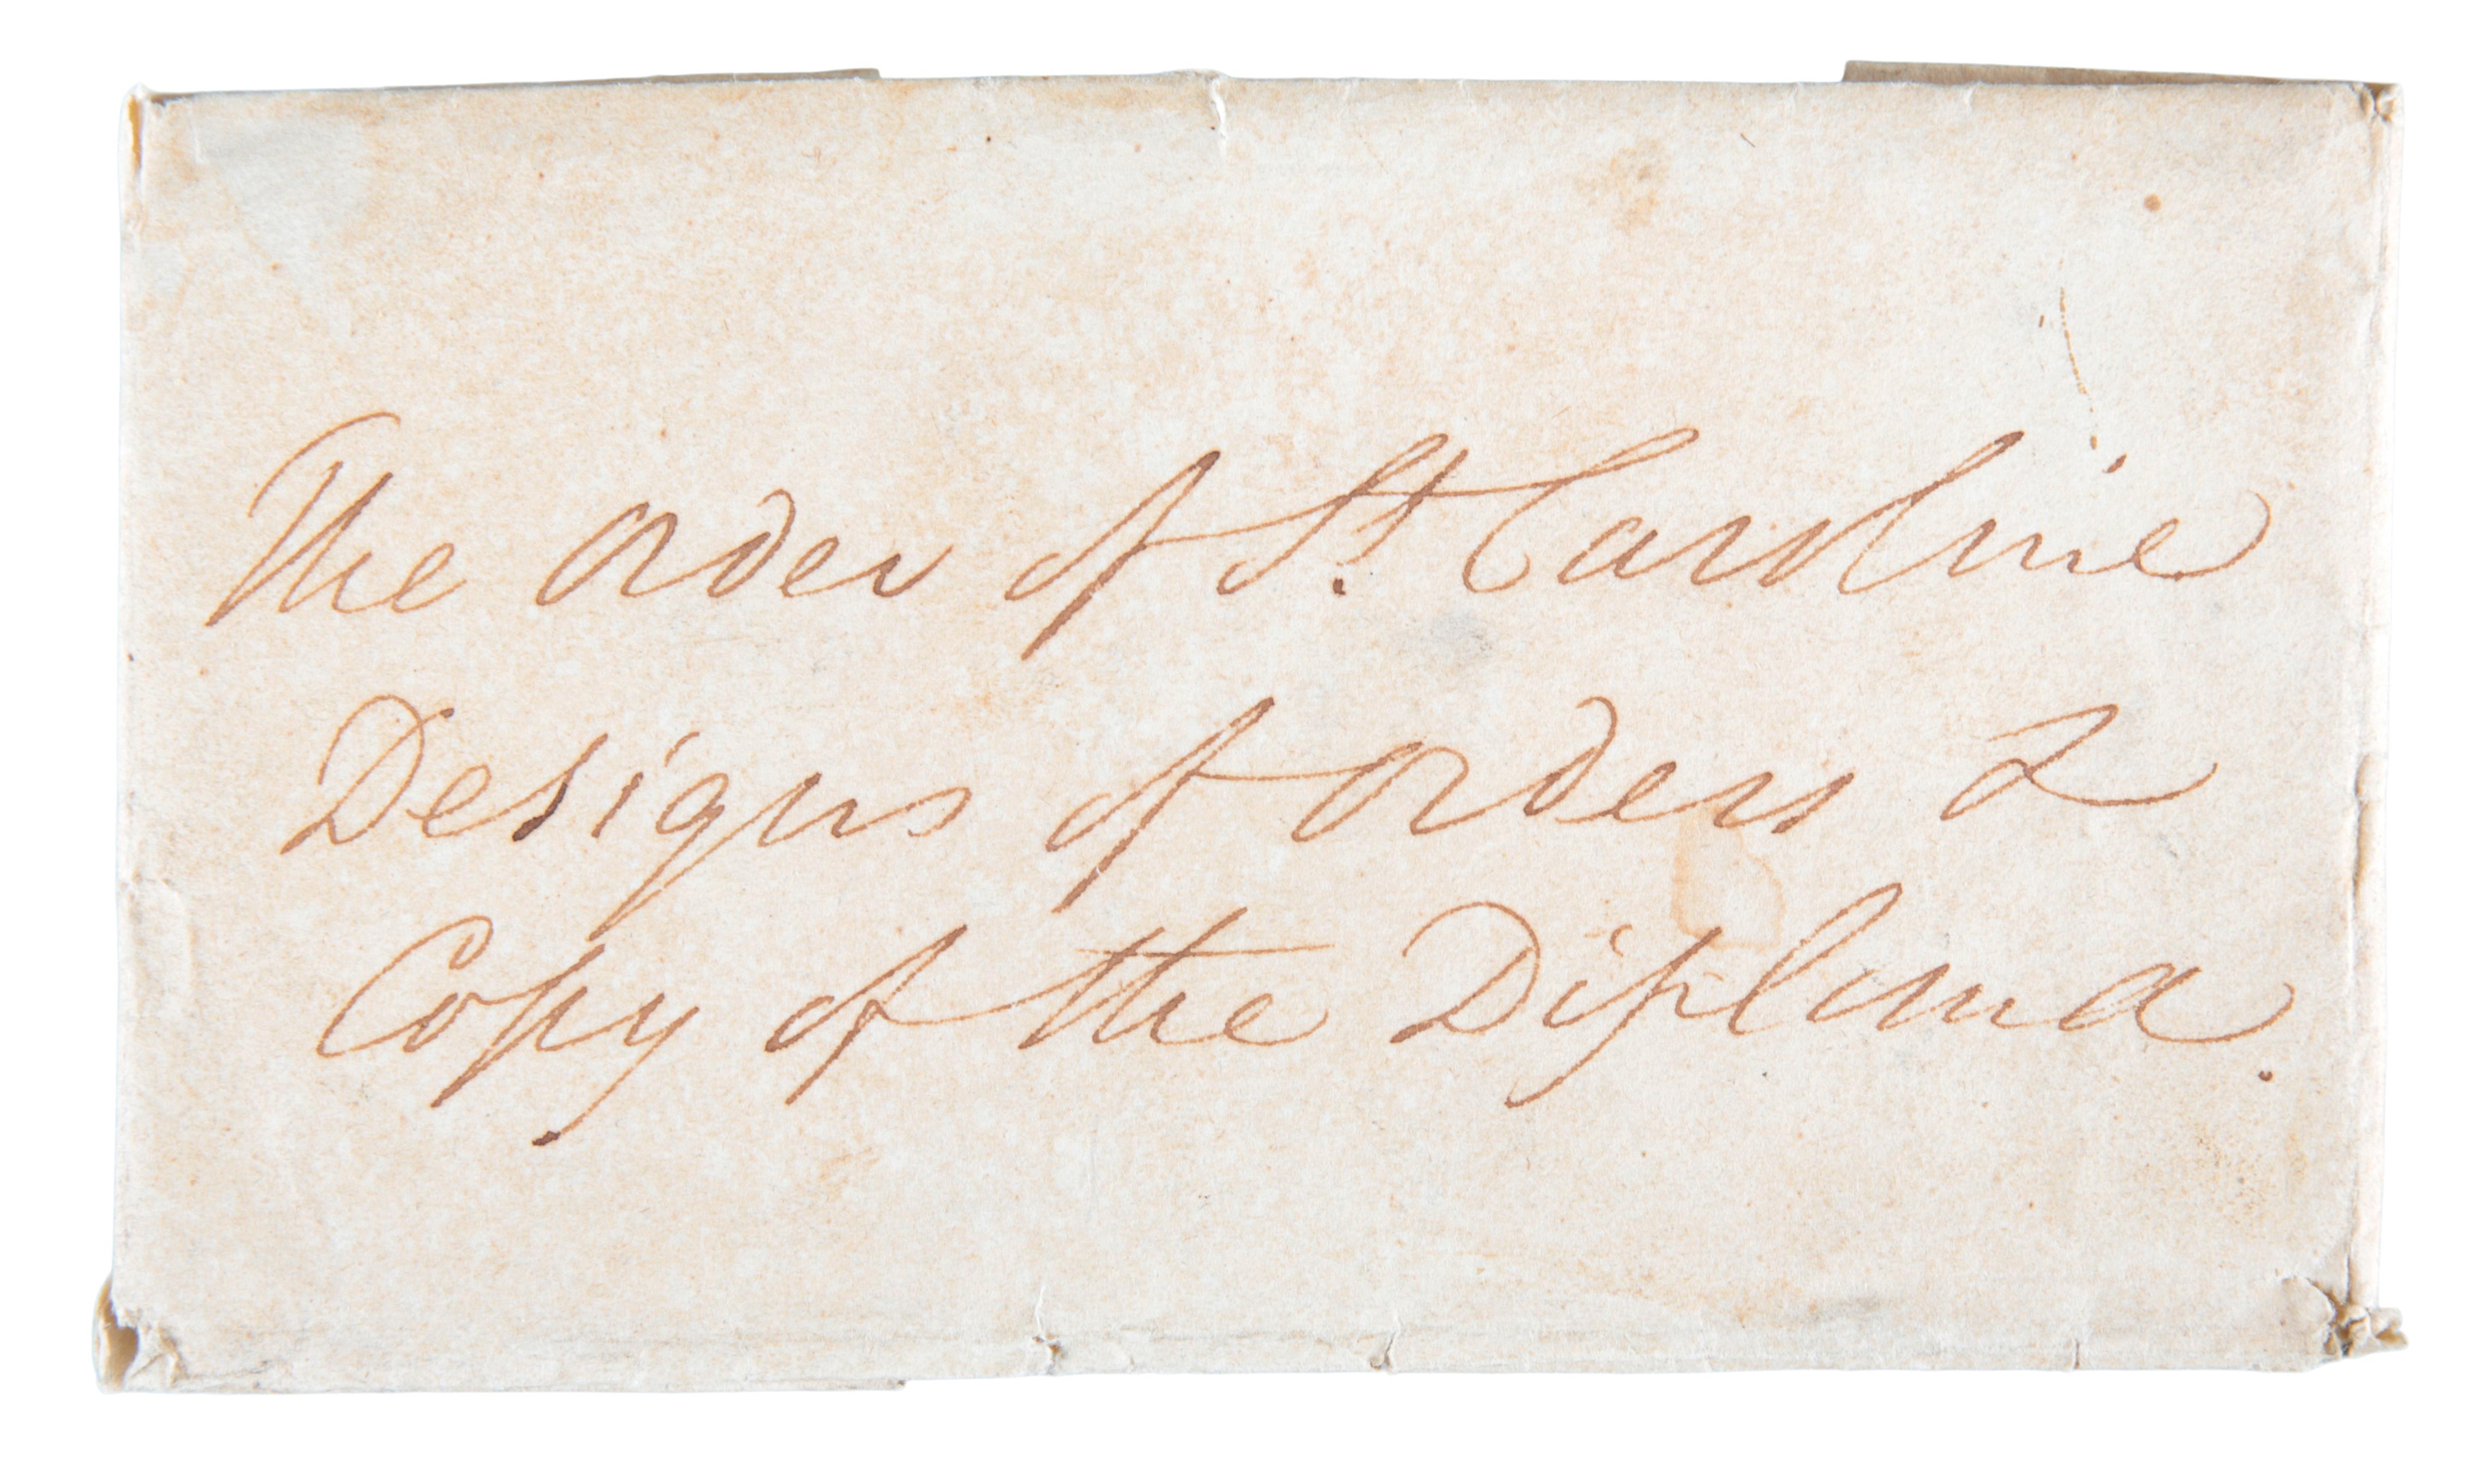 The order of St. Caroline
Designs of orders &
Copy of the Diploma.